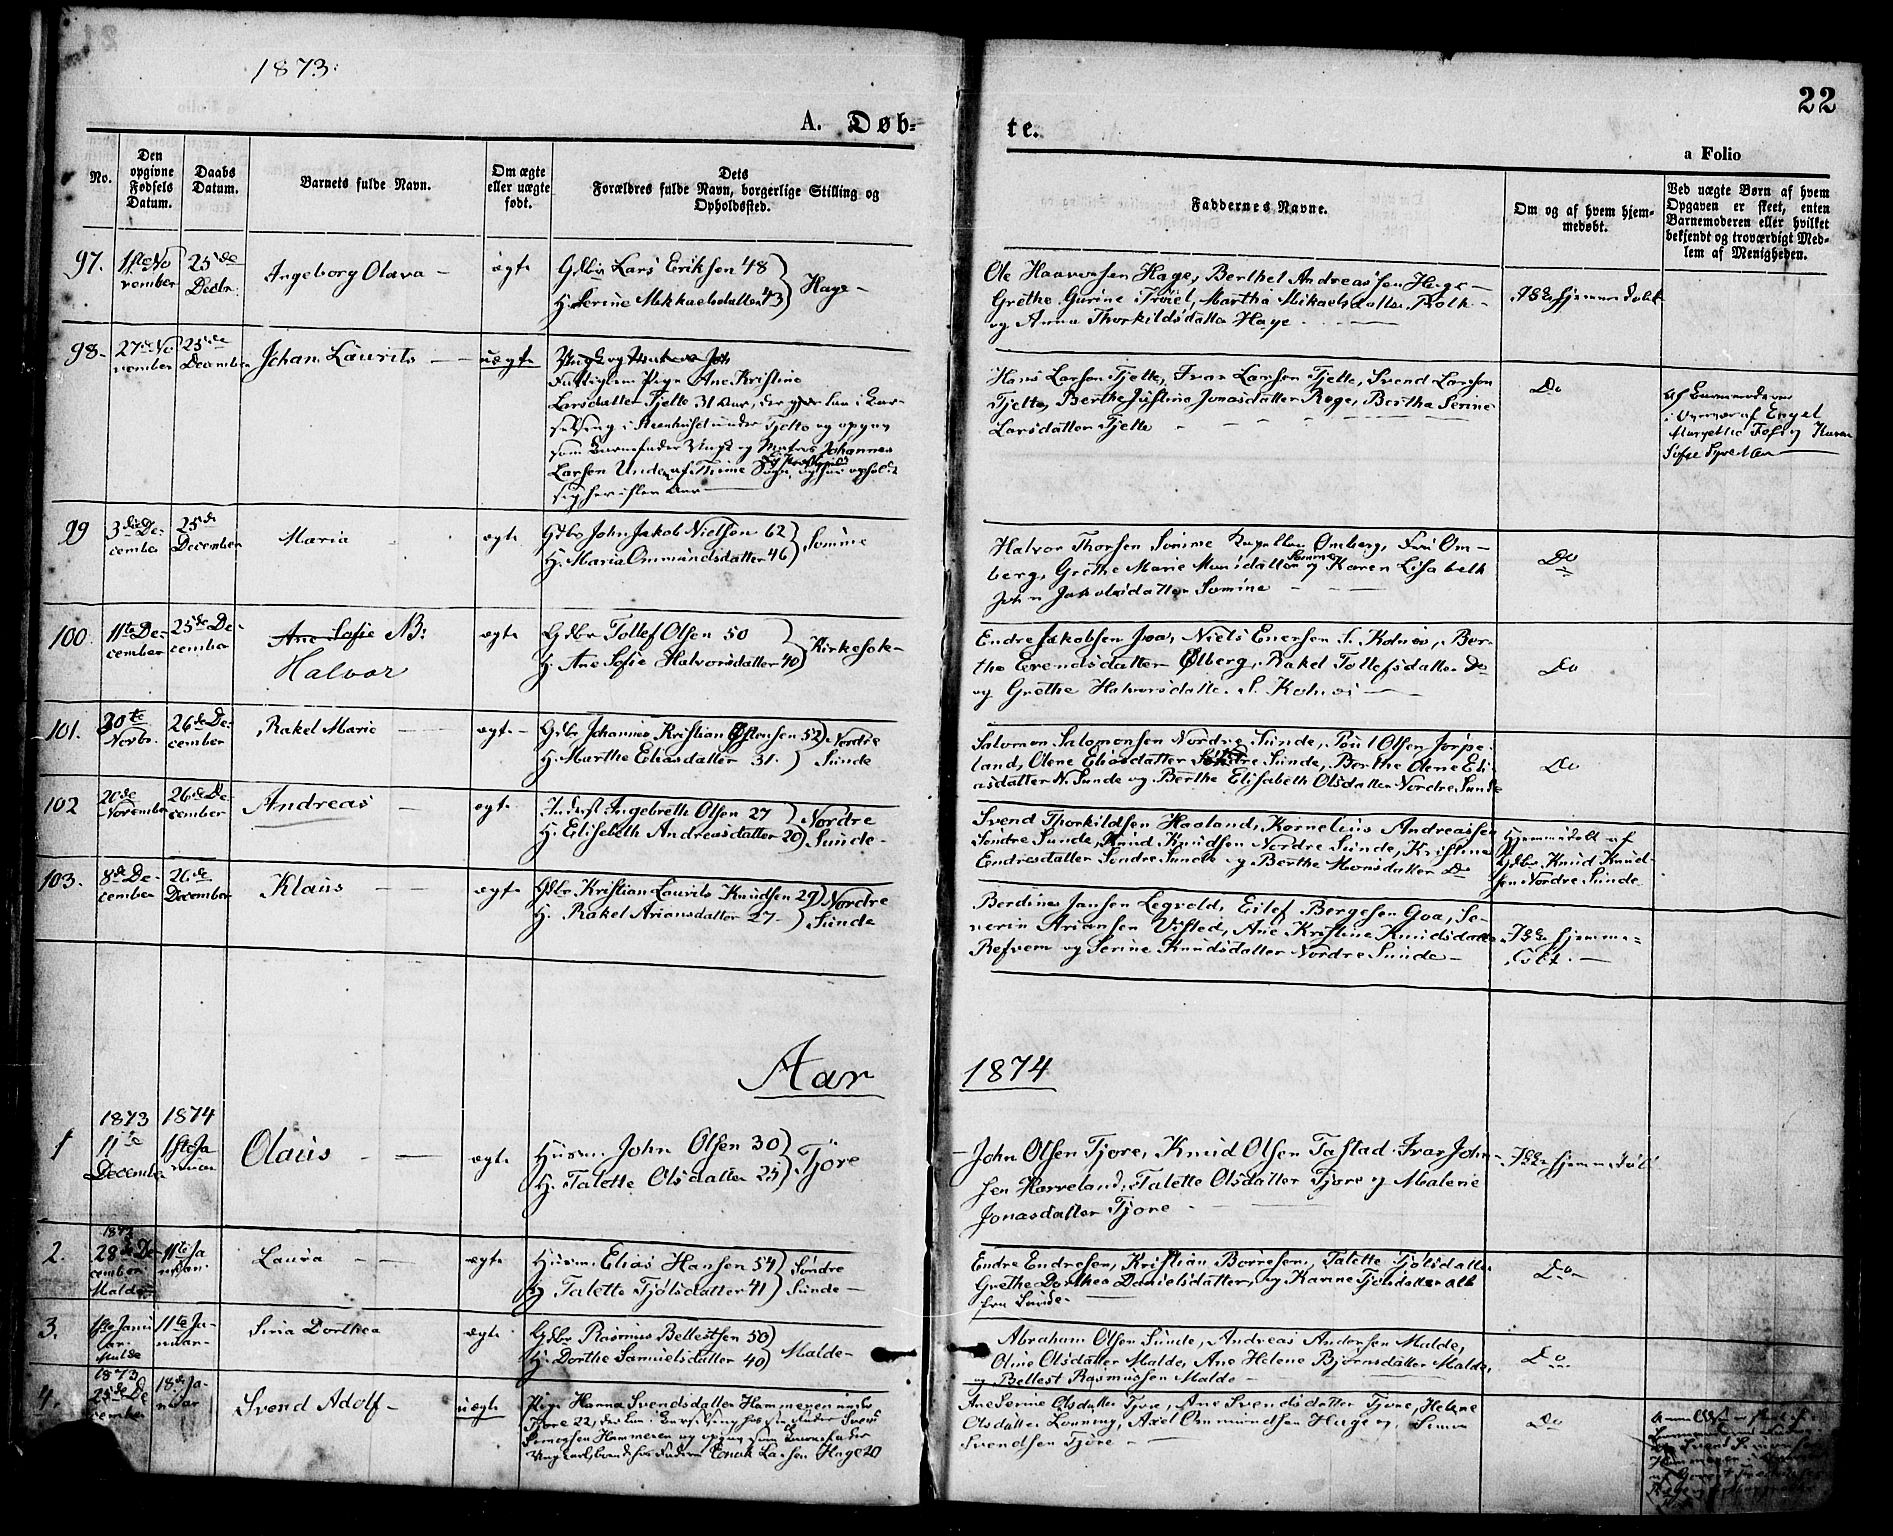 1873.
22
A. Døb-
te.
a Folio
No.
Den opgivne Fødsels Datum.
Daabs Datum.
Barnets fulde Navn.
Om ægte eller uægte født.
Dets Forældres fulde Navn, borgerlige Stilling og Opholdssted.
Faddernes Navne.
Om og af hvem hjemmedøbt.
Ved uægte Børn af hvem Opgaven er skeet, enten Barnemoderen eller hvilket bekjendt og troværdigt Medlem af Menigheden.
97. 1ste November 25de Decbr. Ingeborg Olava - ægte
Gdbr Lars Eriksen 48
H. Serine Mikkaelsdatter 43 } Hage -
Ole Haavorsen Hage, Berthel Andreassen Hage -
Grethe Gurine Troiel, Martha Mikaelsdatter
og Anna Thorkildsdatter Hage
Ikke hjemmedøbt
98. 27de November 25de December Johan Laurits - uægte
Fattiglem Pige Ane Kristine
Larsdatter Tjelte 31 Aar, der
under Tjelte og opgav
som Barnefader Ungk og Matros Johannes
Larsen
Hans Larsen Tjelte, Ivar Larsen Tjelte, Svend Larsen
Tjelte, Berthe Justine Jonasdatter Rege, Bertha Serine
Larsdatter Tjelte
Do
Af Barnemoderen
i Overvær af Engel
Margethe
99 3die December 25de December Maria - ægte
Gdbr John Jakob Nielsen 62
H. Maria Ommundsdatter 46 } Sømme
Halvor Thorsen Sømme Kapellan Omberg, Fru Om-
berg, Grethe Marie Monsdatter Sømme og Karen Lisabeth
John Jakobsdatter Sømme
Do
100. 11te December 25de December Ane Sofie NB:
Halvor ægte
Gdbr Tollef Olsen 50
H. Ane Sofie Halvorsdatter 40 } Kirkesole -
Endre Jakobsen Joa, Niels Enersen S. Kolnes, Ber-
the Erendsdatter Ølberg, Rakel Tollefsdatter Do
og Grethe Halvorsdatter S. Kolnes
Do
101. 30te Novbr. 26de December Rakel Marie - ægte -
Gdbr Johannes Kristian Østensen 52
H. Marthe Eliasdatter 31. } Nordre Sunde
Salomon Salomonsen Nordre Sunde, Poul Olsen Jørpe-
land, Olene Eliasdatter Søndre Sunde, Berthe Olene Eli-
asdatter N. Sunde og Berthe Elisabeth Olsdatter Nordre Sunde
Do
102 20de November 26de December Andreas - ægte
Inderst Ingebreth Olsen 27
H. Elisebeth Andreasdatter 20 } Nordre Sunde -
Svend Thorkildsen Haaland, Kornelius Andreassen
Søndre Sunde, Knud Knudsen Nordre Sunde, Kristine
Endresdatter Søndre Sunde og Berthe Monsdatter Do
Hjemmedøbt af
Gdbr Knud Knud-
sen Nordre Sunde
103. 8de December 26de December Klaus - ægte
Gdbr Kristian Laurits Knudsen 29
H. Rakel Ariansdatter 27 - } Nordre Sunde
Berdines Jansen Legvold, Eilef Børgesen Goa, Se-
verin Ariansen Visted, Ane Kristine Knudsdatter
Refvem og Serine Knudsdatter Nordre Sunde -
Ikke hjemme-
døbt. -
Aar 1874
1 1873 11te December 1874 1ste Januar Olaus - ægte
Husm. John Olsen 30
H. Talette Olsdatter 25 } Tjøre
- John Olsen Tjore, Knud Olsen Tastad. Ivar John-
sen Hørreland, Talette Olsdatter Tjore og Malene
Jonasdatter Tjore -
Ikke hjemmedøbt
2. 1873 28de December Malde 11te Januar Laura - ægte
Husm. Elias Hansen 54
H. Talette Tjølsdatter 41 } Søndre Sunde -
Endre Endresen, Kristian Børresen, Talette Tjølsdatter
Grethe Dorthea Danielsdatter, og Karine Tjølsdatter alle
fra Sunde -
Do -
3. 1ste Januar Malde 11te Januar Siria Dorthea ægte
Gdbr Rasmus Bellestsen 50
H. Dorthe Samuelsdatter 40 } Malde -
Abraham Olsen Sunde, Andreas Andersen Malde,
Oline Olsdatter Malde, Ane Helene Bjørnsdatter Malde,
og Bellest Rasmussen Malde -
Do
4. 1873 25de December 18de Januar Svend Adolf - uægte
Pige Hanna Svendsdatter Hammeren under
Tjore 22, der
Simonsen Hammeren og opgav som Barnefader
Enok Larsen Hage 20
Ane Serine Olsdatter Tjore, Ane Svendsdatter Tjore, Helene
Olsdatter Lønning, Axel Ommundsen Hage og Simon
Svendsen Tjore -
Do